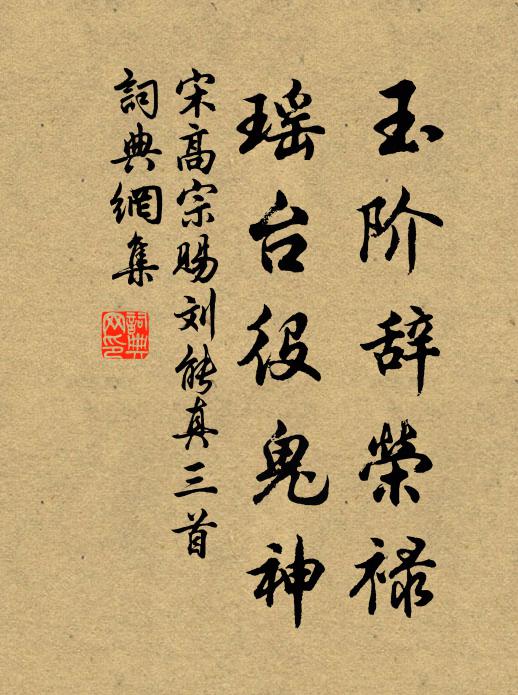 玉阶辞荣禄
瑶台役鬼神
宋高宗赐刘能真三首
词典網集
詞典
网印